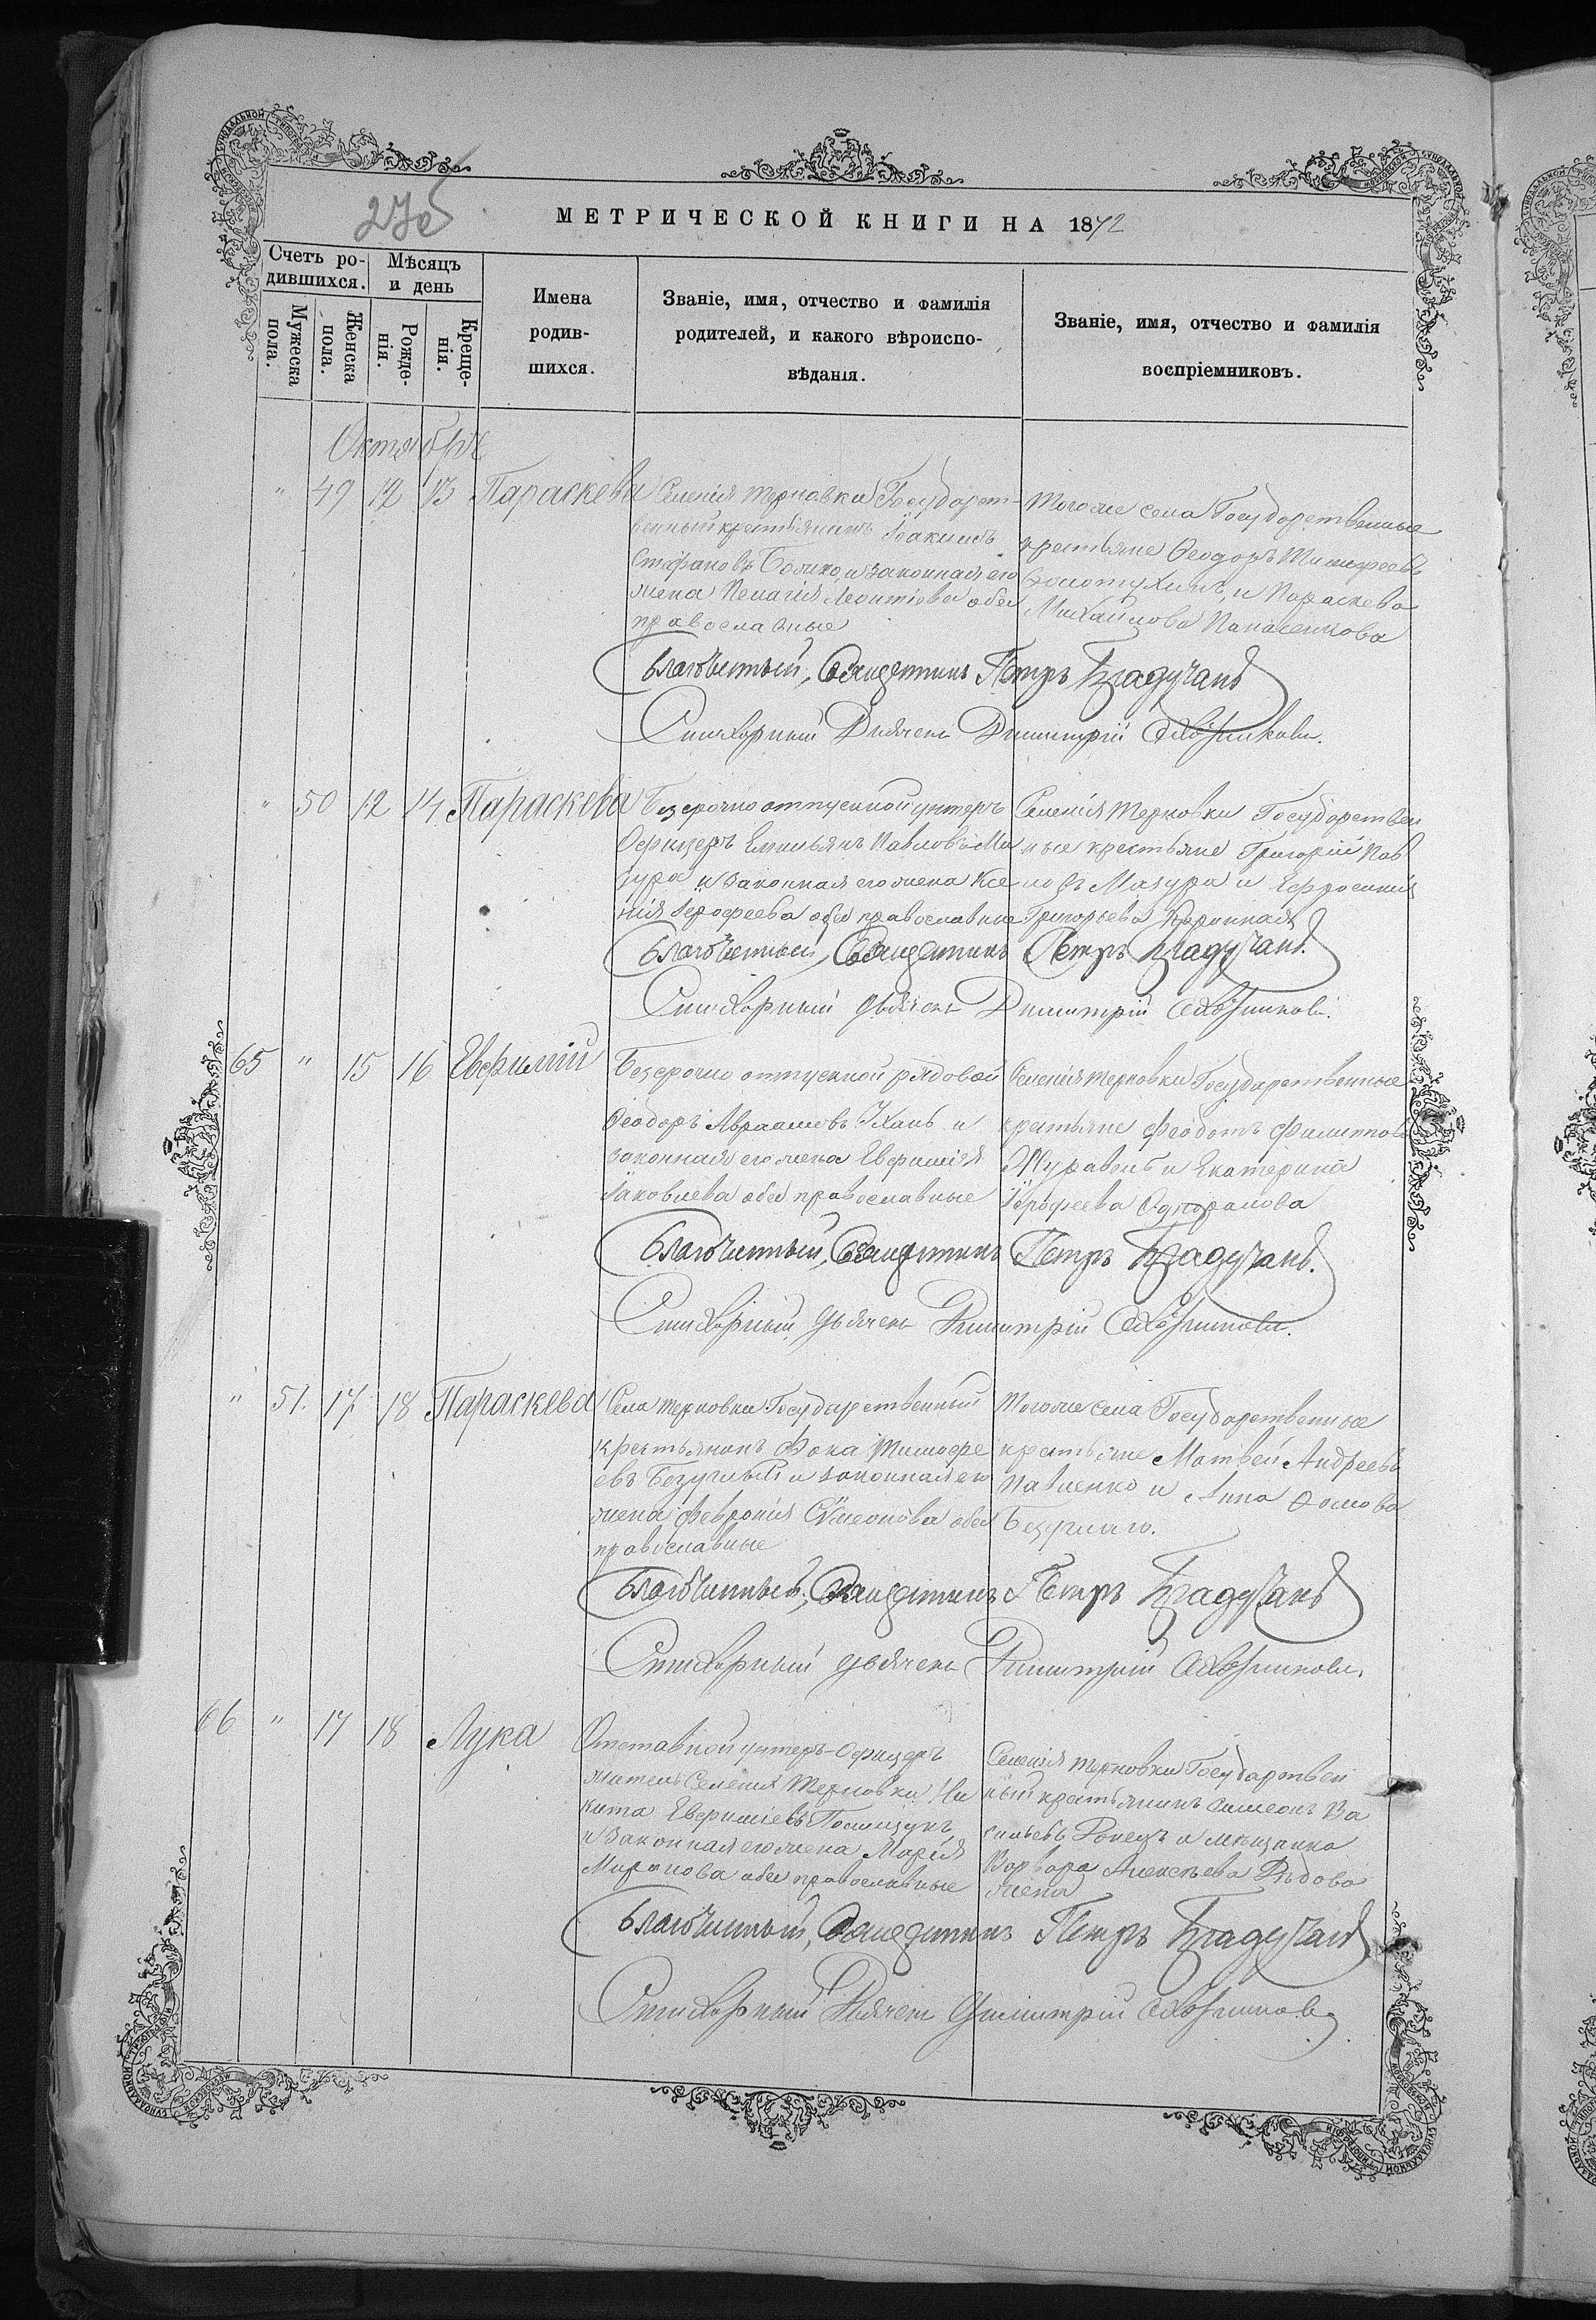 276
МЕТРИЧЕСКОЙ КНИГИ НА 1872
Счетъ ро-
дившихся.
Мѣсяцъ
и день
Мужеска
пола.
Женска
пола.
Рожде-
нія.
Креще-
нія.
Имена
родив-
шихся.
Званіе, имя, отчество и фамилія
родителей, и какого вѣроиспо-
вѣданія.
Званіе, имя, отчество и фамилія
воспріемниковъ.
Октябрь
" 49 12 13 Параскева
Селенія Терновки Государст-
венный крестьянинъ Іоакимъ
Стефановъ и законная его
жена Пелагія Леонтіева оба
православные
Тогоже села Государственные
крестьяне Ѳеодоръ Тимофеевъ
Золотухинъ, и Параскева
Михайлова Панасенкова
Благочинный, Священникъ Петръ
Стихарный Дьячекъ Димитрій
" 50 12 14 Параскева
Безсрочно отпускной унтеръ
Офицеръ Емильянъ Павловъ Ма
зура и законная его жена Ксе
нія Іерофеева оба православные
Селенія Терновки Государствен
ные крестьяне Григорій Пав
ловъ Мазура и Ефросинія
Григорьева
Благочинный, Священникъ Петръ
Стихарный дьячекъ Димитрій
65 " 15 16 Евфимій
Безсрочно отпускной рядовой
Ѳеодоръ Авраамовъ и
законная его жена Евфимія
Іаковлева оба православные
Селенія Терновки Государственные
крестьяне Феодотъ Филипповъ
Журавель и Екатерина
Іерофеева
Благочинный, Священникъ Петръ
Стихарный дьячекъ Димитрій
" 51. 17 18 Параскева
Села Терновки Государственный
крестьянинъ Фока Тимофе
евъ Безуглый и законная его
жена Февронія Сѵмеонова оба
православные
Тогоже села Государственные
крестьяне Матвей Андреевъ
Павленко и Анна Ѳомова
Безуглаго.
Благочинный, Священникъ Петръ
Стихарный дьячекъ Димитрій
66 " 17 18 Лука
Отставной унтеръ-Офицеръ
житель Селенія Терновки Ни
кита Евфиміевъ Полищукъ
и законная его жена Марія
Миронова оба православные
Селенія Терновки Государствен
ный крестьянинъ Симеонъ Ва
сильевъ Донецъ и мѣщанка
Варвара Алексѣева
жена
Благочинный, Священникъ Петръ
Стихарный Дьячекъ Димитрій